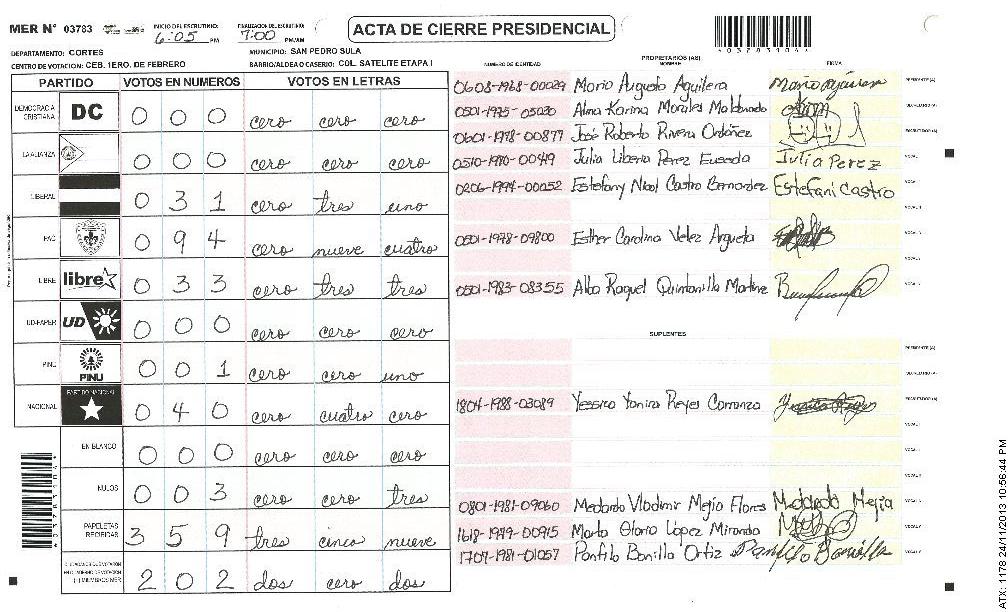 MER N° 03783
INICIO DEL ESCRUTINIO: 6:05 PM
FINALIZACION DEL ESCRUTINIO: 7:00 PM/AM
ACTA DE CIERRE PRESIDENCIAL
DEPARTAMENTO: CORTES
MUNICIPIO: SAN PEDRO SULA
CENTRO DE VOTACION: CEB. 1ERO. DE FEBRERO
BARRIO/ALDEA O CASERIO: COL. SATELITE ETAPA I
PARTIDO VOTOS EN NUMEROS VOTOS EN LETRAS
DEMOCRACIA CRISTIANA DC 0 0 0 cero cero cero
LA ALIANZA 0 0 0 cero cero cero
LIBERAL 0 3 1 cero tres uno
PAC 0 9 4 cero nueve cuatro
LIBRE libre 0 3 3 cero tres tres
UD-FAPER UD 0 0 0 cero cero cero
PINU PINU 0 0 1 cero cero uno
NACIONAL PARTIDO NACIONAL 0 4 0 cero cuatro cero
EN BLANCO 0 0 0 cero cero cero
NULOS 0 0 3 cero cero tres
PAPELETAS RECIBIDAS 3 5 9 tres cinco nueve
2 0 2 dos cero dos
PROPIETARIOS (AS)
NUMERO DE IDENTIDAD NOMBRE FIRMA
0608-1968-00029 Mario Augusto Aguilera
0501-1975-05030 Alma Karina Morales Maldonado
0601-1978-00877 José Roberto Rivera Ordóñez
0510-1980-00419 Julia Liberia Perez Euseda Julia Perez
0206-1994-00052 Estefany Nicol Castro Bernardez Estefani Castro
0501-1978-09800 Esther Carolina Velez Argueta
0501-1983-08355 Alba Raquel Quintanilla Martine
SUPLENTES
1804-1988-03089 Yessica Yanira Reyes Carranza
0801-1981-09060 Medardo Vladimir Mejia Flores Medardo Mejia
1618-1979-00915 Marta Gloria López Miranda
1707-1981-01057 Panfilo Bonilla Ortiz Panfilo Bonilla
ATX: 1178 24/11/2013 10:56:44 PM